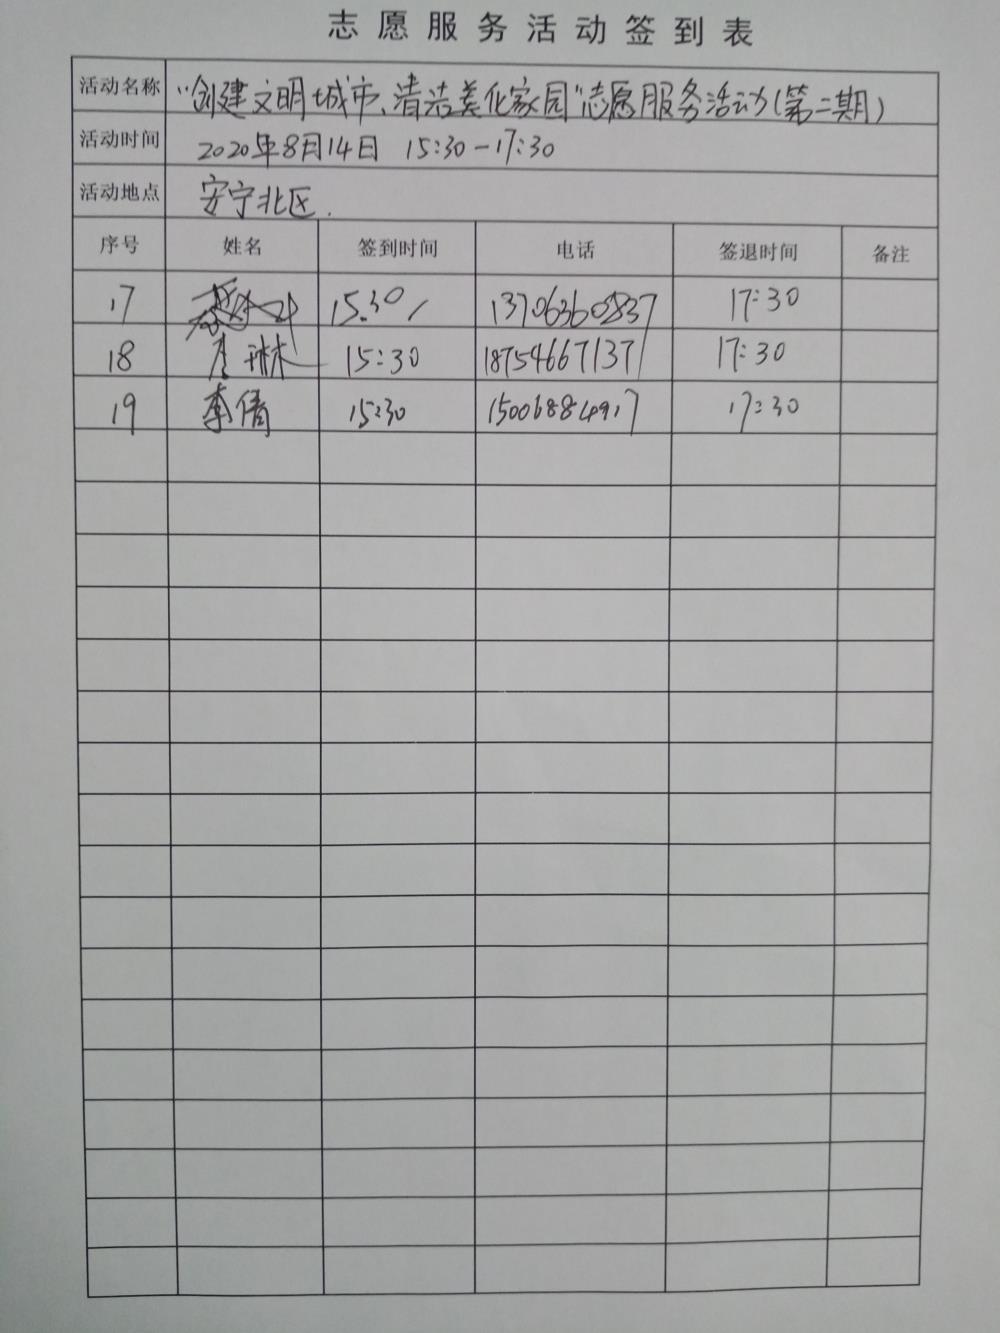 志愿服务活动签到表
活动名称 "创建文明城市、清洁美化家园"志愿服务活动(第二期)
活动时间 2020年8月14日 15:30-17:30
活动地点 安宁北区.
序号 姓名 签到时间 电话 签退时间 备注
17 15:30 13706360837 17:30
18 琳 15:30 18754667137 17:30
19 李倩 15:30 15006884917 17:30